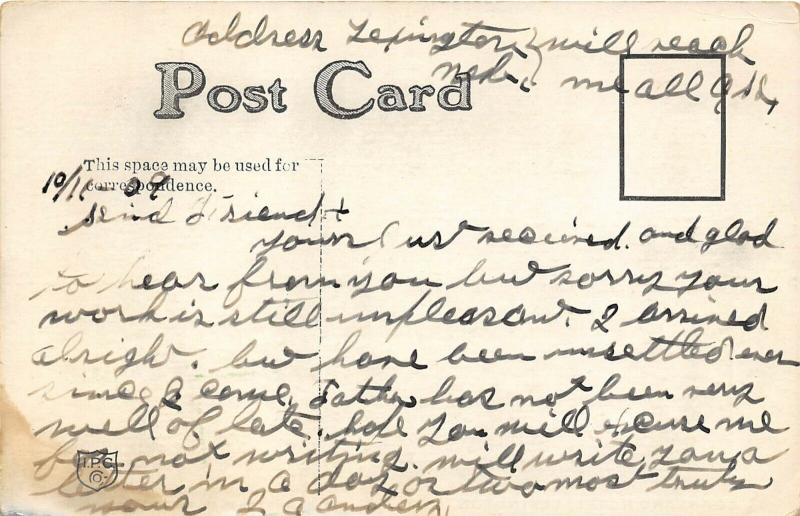 Address Lexington, will reach
Nebr. me all O.K.,
Post Card
This space may be used for
correspondence.
10/11-09
Friend:
yours just received. and glad
to hear from you but sorry your
work is still unpleasant. I arrived
alright. but have been unsettled ever
since I come, Father has not been very
well of late. hope you will excuse me
for not writing. will write you a
letter in a day or two most truly
your
I.P.C.
Co.